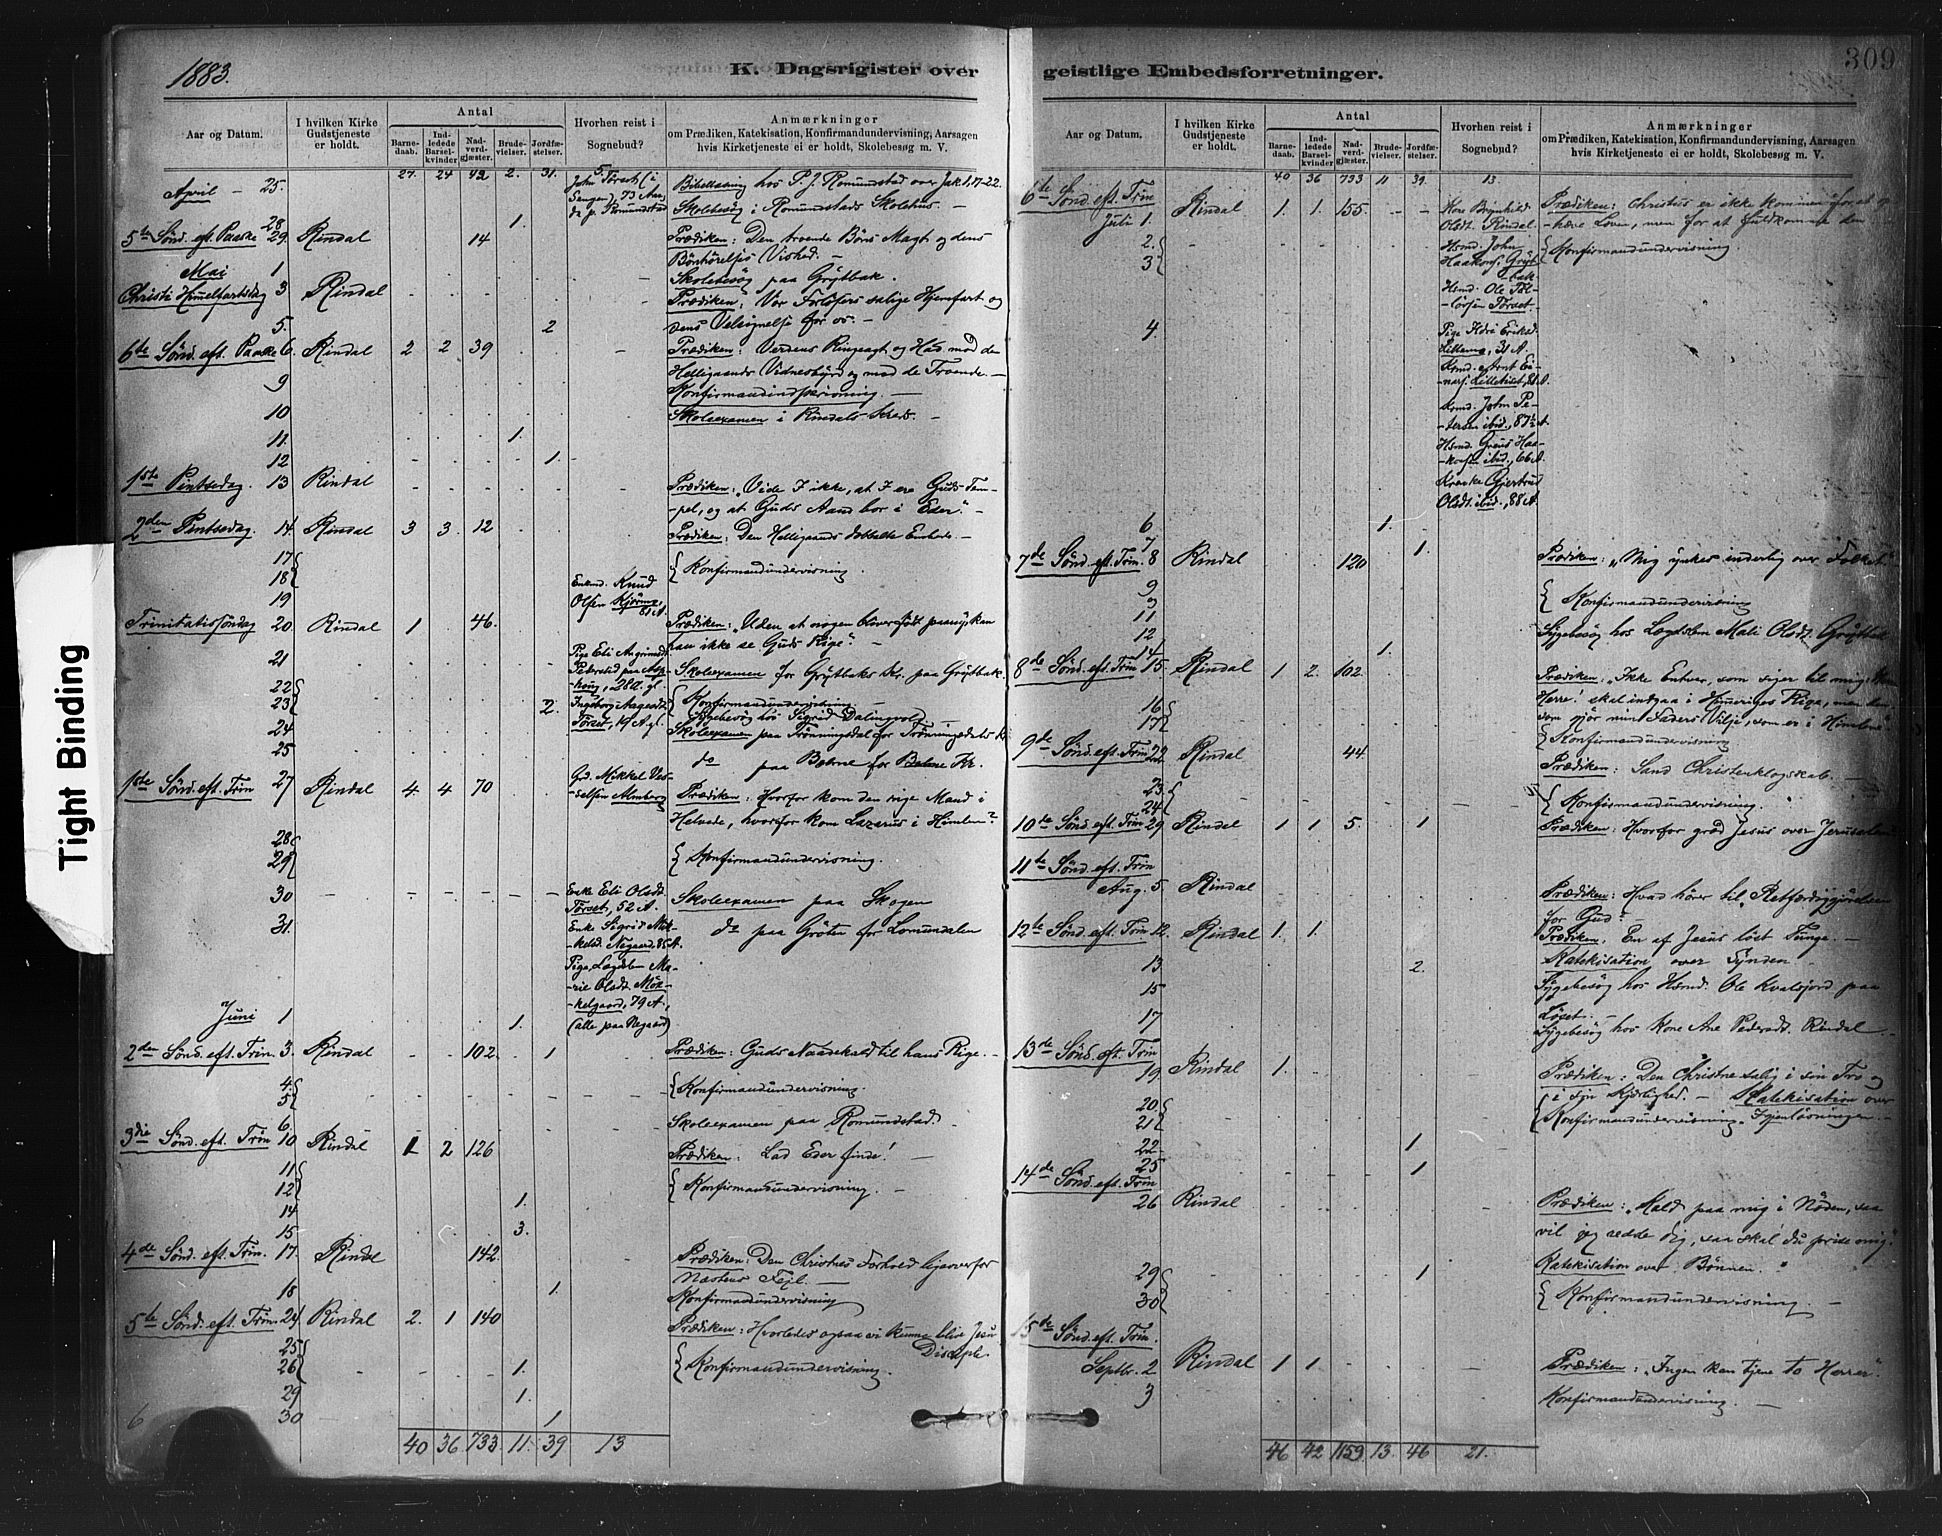 1883.
K. Dagsrigister over
geistlige Embedsforretninger.
309
Tight Binding
Aar og Datum.
I hvilken Kirke Gudstjeneste er holdt.
Antal
Barnedaab.
Indledede Barselkvinder
Nadverdgjæster.
Brudevielser.
Jordfæstelser.
Hvorhen reist i Sognebud?
Anmærkninger
om Prædiken, Katekisation, Konfirmandundervisning, Aarsagen
hvis Kirketjeneste ei er holdt, Skolebesøg m. V.
27. 24 42 2. 31. 5.
April - 25. Bibellæsning hos P. J. Romundstad over Jak 1, 17-22.
Skolebesøg i Romundstads Skolehus. -
28 1.
5te Sønd. eft. Paaske 29. Rindal 14 Prædiken: Den troende Bøns Magt og dens
Bønhørelses Vished. -
Mai 1 Skolebesøg paa Grytbak.
Christi Himmelfartsdag 3 Rindal Prædiken: Vor Forløsers salige Hjemfart og
dens Velsignelse for os. -
5. 2
6te Sønd. eft. Paaske 6. Rindal 2 2 39 Prædiken: Verdens Ringeagt og Had mod den
Helligaands Vidnesbyrd og mod de Troende. -
9 Konfirmandindskrivning. -
10 Skoleexamen i Rindals-Kreds. -
11. 1.
12 1.
1ste Pintsedag. 13 Rindal Prædiken: "Vide I ikke, at I ere Guds Tem-
-pel, og at Guds Aand bor i Eder." -
2den Pintsedag. 14. Rindal 3 3. 12 Prædiken: Den Helligaands dobbelte Embede. -
17
18 Konfirmandundervisning.
19 Enkmd. Knud Olsen
Trinitatissøndag 20. Rindal 1 46. Prædiken: "Uden at nogen bliver født paany, kan
han ikke se Guds Rige". -
21 Skoleexamen for Grytbaks Kr. paa Grytbak.
22
23 2. Konfirmandundervisning
Sygebesøg hos Sigrid Dalingvold
24 Skoleexamen paa
25 do paa Bolme for Bolme Kr.
1ste Sønd. eft. Trin 27 Rindal 4 4 70 Gd. Mikkel Almberg Prædiken: Hvorfor kom den rige Mand i
Helvede, hvorfor kom Lazarus i Himlen?
28
29 Konfirmandundervisning.
30 Enke Eli Olsdt. Tørset, 52 A. Skoleexamen paa Skogen
31. do paa Grøten for Lomundalen
Juni 1 1. (alle paa Negaard)
2den Sønd. eft. Trin. 3. Rindal 102. 1 Prædiken: Guds Naadekald til hans Rige. -
4.
5 Konfirmandundervisning.
6. Skoleexamen paa Romundstad.
3die Sønd. eft. Trin 10 Rindal 1 2 126 Prædiken: Lad Eder finde! -
11
12 Konfirmandundervisning. -
14 1.
15 3.
4de Sønd. eft. Trin. 17. Rindal 142. Prædiken: Den Christnes Forhold ligeoverfor
Næstens Fejl. -
18 1. Konfirmandundervisning
5te Sønd. eft. Trin. 24 Rindal 2. 1 140 Prædiken: Hvorledes ogsaa vi kunne blive Jesu
Disciple.
25
26 1. Konfirmandundervisning.
29 1.
30 1
40 36. 733. 11. 39 13
Aar og Datum.
I hvilken Kirke Gudstjeneste er holdt.
Antal
Barnedaab.
Indledede Barselkvinder
Nadverdgjæster.
Brudevielser.
Jordfæstelser.
Hvorhen reist i Sognebud?
Anmærkninger
om Prædiken, Katekisation, Konfirmandundervisning, Aarsagen
hvis Kirketjeneste ei er holdt, Skolebesøg m. V.
40 36 733 11 39. 13.
6te Sønd. eft. Trin
Juli 1. Rindal 1. 1. 155. Prædiken: Christus er ikke kommen for at op-
-hæve Loven, men for at fuldkomme den
2.
3 Konfirmandundervisning.
4.
6 1.
7 1.
7de Sønd. eft. Trin. 8 Rindal 120 Prædiken: "Mig ynkes inderlig over Folket"
9
11 Konfirmandundervisning
12 Sygebesøg hos Lægdslem Mali Olsdt. Grytbak
14 1.
8de Sønd. eft. Trin 15. Rindal 1 2. 102. Prædiken: Ikke Enhver, som siger til mig: Herre
Herre! skal indgaa i Himmeriges Rige, men den,
som gjør min Faders Vilje, som er i Himlene"
16
17 Konfirmandundervisning
9de Sønd. eft. Trin 22. Rindal 44. Prædiken: Sand Christenklogskab. -
23
24 Konfirmandundervisning.
10de Sønd. eft. Trin 29 Rindal 1 1 5. 1 Prædiken: Hvorfor græd Jesus over Jerusalem?
11te Sønd. eft. Trin
Aug. 5. Rindal Prædiken: Hvad hører til "Retfærdiggjørelsen
for Gud? -
12te Sønd. eft. Trin 12. Rindal 1. 1. Prædiken. En af Jesus løst Tunge. -
Katekisation over Synden
13 2.
15 Sygebesøg hos Hsmd. Ole Kvalsjord paa
Løset. -
17 Sygebesøg hos Kone Ane Pedersdt. Rindal
13de Sønd. eft. Trin
19 Rindal 1. Prædiken: Den Christne salig i sin Tro og
i sin Kjærlighed. - Katekisation over
Igjenløsningen. -
20
21 Konfirmandundervisning.
22 1
25 1
14de Sønd. eft. Trin
26 Rindal Prædiken: "Kald paa mig i Nøden, saa
vil jeg redde dig, saa skal du prise mig."
Katekisation over Bønnen.
29 1
30 Konfirmandundervisning. -
15de Sønd. eft. Trin.
Septbr. 2 Rindal 1 1 Prædiken: "Ingen kan tjene to Herrer".
3 Konfirmandundervisning. -
46 42 1159 13. 46 21.